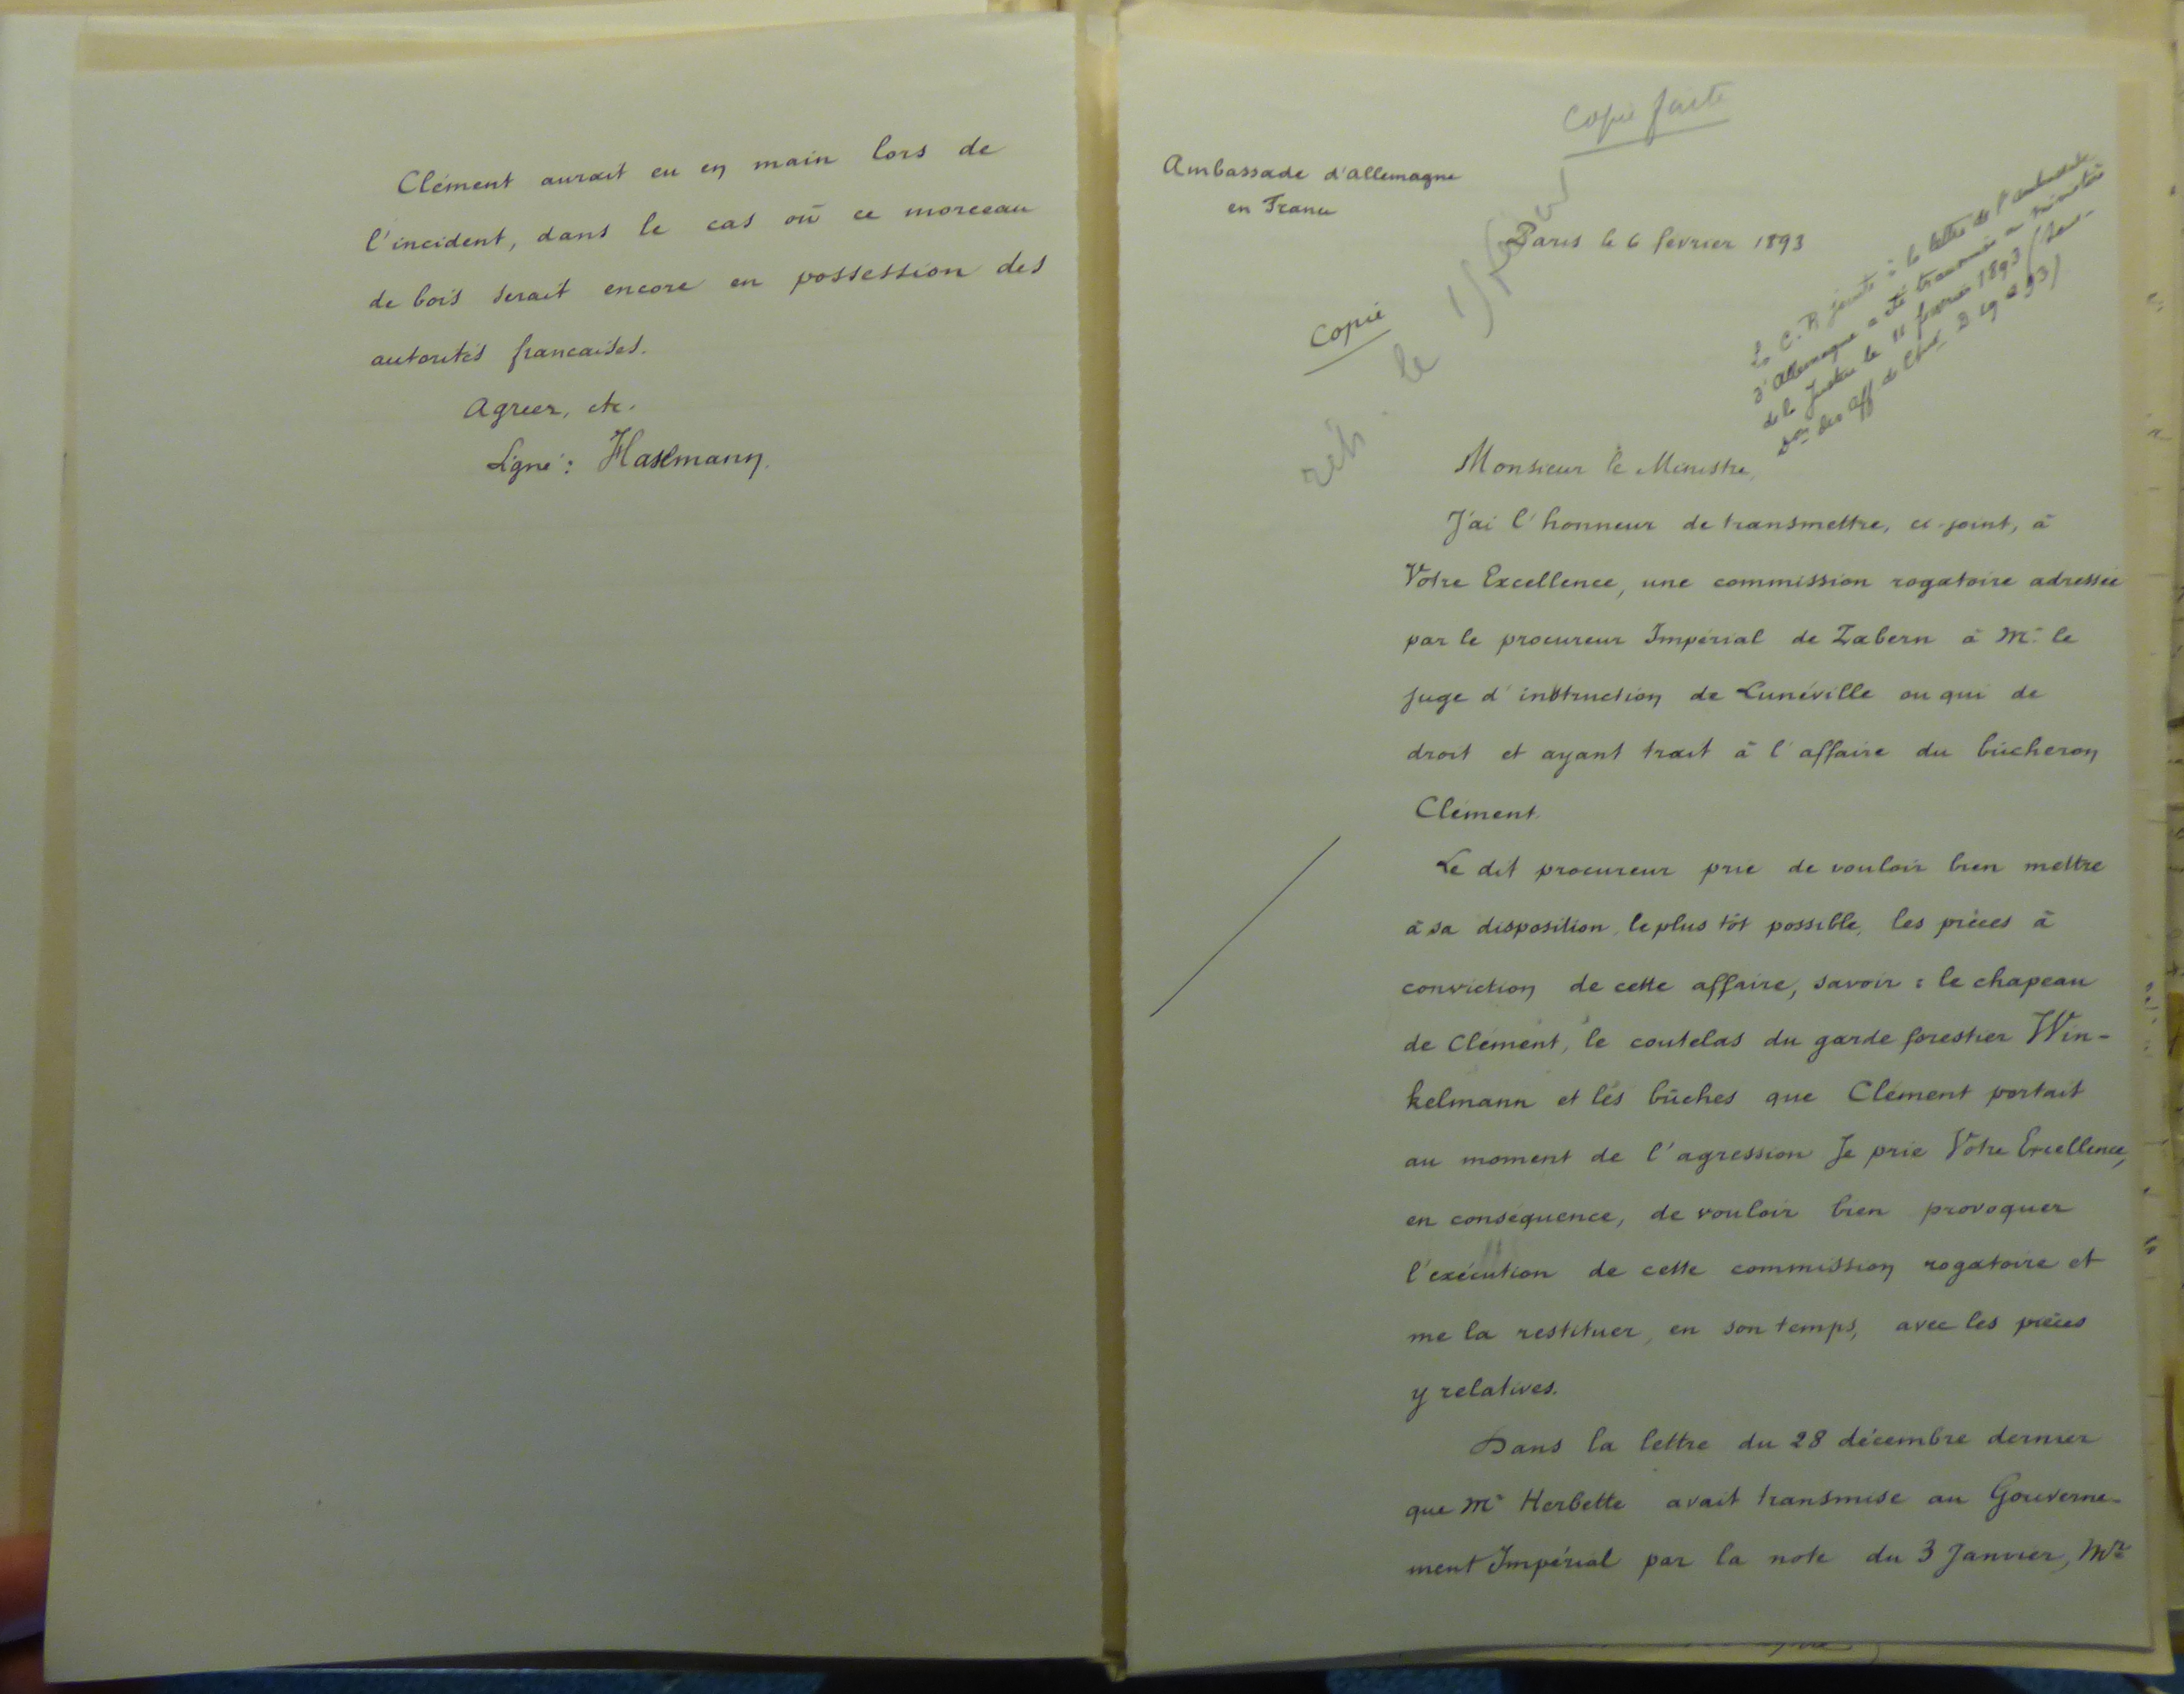 Clément aurait eu en main lors de
l'incident, dans le cas où ce morceau
de bois serait encore en possession des
autorités françaises.
Agréer, etc.
Signé: Haselmann.
Copie faite
Ambassade d'allemagne
en France
Paris le 6 février 1893
Copie
réb. le
La C. R jointe à la lettre de l'ambassade
d'Allemagne a été transmise au ministère
de la Justice le 11 fevrier 1893
des aff de Chr
Monsieur le Ministre,
J'ai l'honneur de transmettre, ci-joint, à
Votre Excellence, une commission rogatoire adressée
par le procureur Impérial de Zabern à Mr le
juge d'instruction de Lunéville ou qui de
droit et ayant trait à l'affaire du bûcheron
Clément.
Le dit procureur prie de vouloir bien mettre
à sa disposition, le plus tôt possible, les pièces à
conviction de cette affaire, savoir : le chapeau
de Clément, le coutelas du garde forestier Win-
kelmann et les bûches que Clément portait
au moment de l'agression Je prie Votre Excellence,
en conséquence, de vouloir bien provoquer
l'exécution de cette commission rogatoire et
me la restituer, en son temps, avec les pièces
y relatives.
Dans la lettre du 28 décembre dernier
que Mr Herbette avait transmise au Gouverne-
ment Impérial par la note du 3 Janvier, Mr